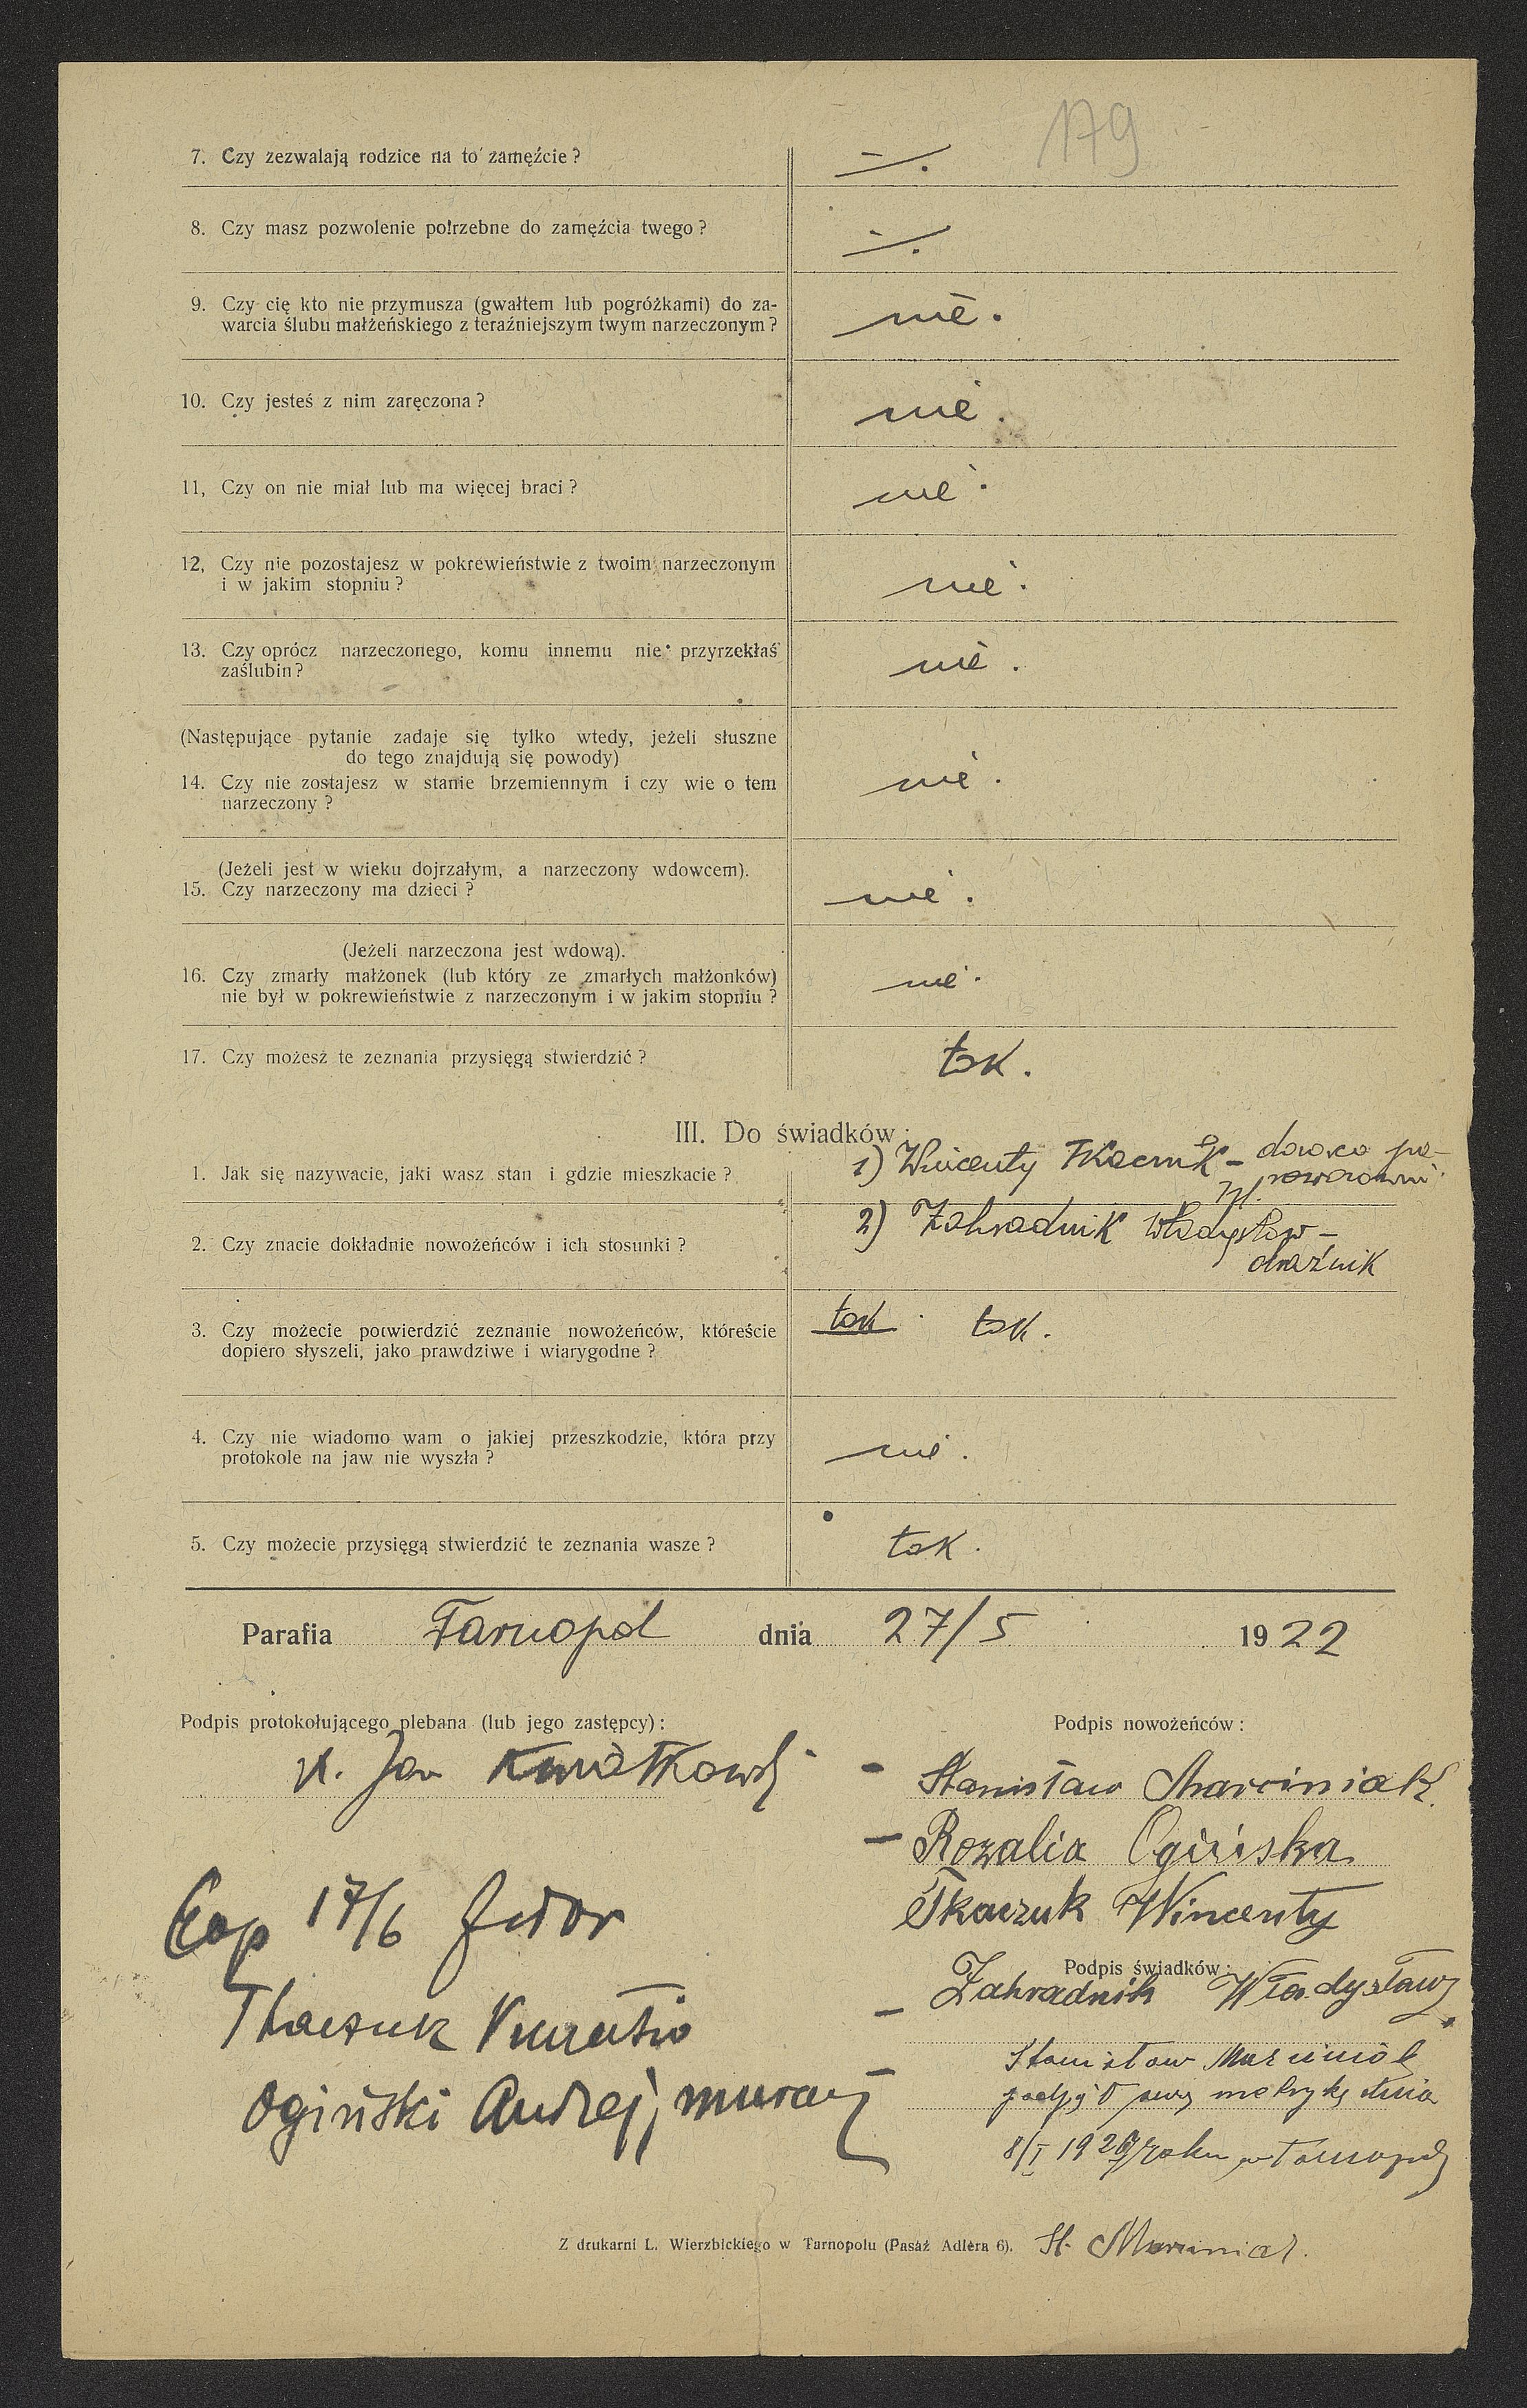 179
7. Czy zezwalają rodzice na to zamęźcie?
8. Czy masz pozwolenie potrzebne do zamęźcia twego?
9. Czy cię kto nie przymusza (gwałtem lub pogróżkami) do za-
warcia ślubu małżeńskiego z teraźniejszym twym narzeczonym?
nie.
10. Czy jesteś z nim zaręczona?
nie.
11, Czy on nie miał lub ma więcej braci?
nie.
12, Czy nie pozostajesz w pokrewieństwie z twoim narzeczonym
i w jakim stopniu?
nie.
13. Czy oprócz narzeczonego, komu innemu nie przyrzekłaś
zaślubin?
nie.
(Następujące pytanie zadaje się tylko wtedy, jeżeli słuszne
do tego znajdują się powody)
14. Czy nie zostajesz w stanie brzemiennym i czy wie o tem
narzeczony?
nie.
(Jeżeli jest w wieku dojrzałym, a narzeczony wdowcem).
15. Czy narzeczony ma dzieci?
nie.
(Jeżeli narzeczona jest wdową).
16. Czy zmarły małżonek (lub który ze zmarłych małżonków)
nie był w pokrewieństwie z narzeczonym i w jakim stopniu?
nie.
17. Czy możesz te zeznania przysięgą stwierdzić?
tak.
III. Do świadków:
1. Jak się nazywacie, jaki wasz stan i gdzie mieszkacie?
1) Wincenty
2. Czy znacie dokładnie nowożeńców i ich stosunki?
2) Zahradnik Władysław –
3. Czy możecie potwierdzić zeznanie nowożeńców, któreście
dopiero słyszeli, jako prawdziwe i wiarygodne?
tak. tak.
4. Czy nie wiadomo wam o jakiej przeszkodzie, która przy
protokole na jaw nie wyszła?
nie.
5. Czy możecie przysięgą stwierdzić te zeznania wasze?
tak.
Parafia Tarnopol dnia 27/5 1922
Podpis protokołującego plebana (lub jego zastępcy):
X. Jan Kwiatkowski
Podpis nowożeńców:
– Stanisław Marciniak
– Rozalia Ogińska
Tkaczuk Wincenty
Podpis świadków:
– Zahradnik Władysław
Cop 17/6 Fedor
Tkaczuk
Ogiński Andrzej, murarz
Stanisław Marciniak
podjął swą metrykę dnia
roku w Tarnopolu
St. Marciniak.
Z drukarni L. Wierzbickiego w Tarnopolu (Pasaż Adlera 6).